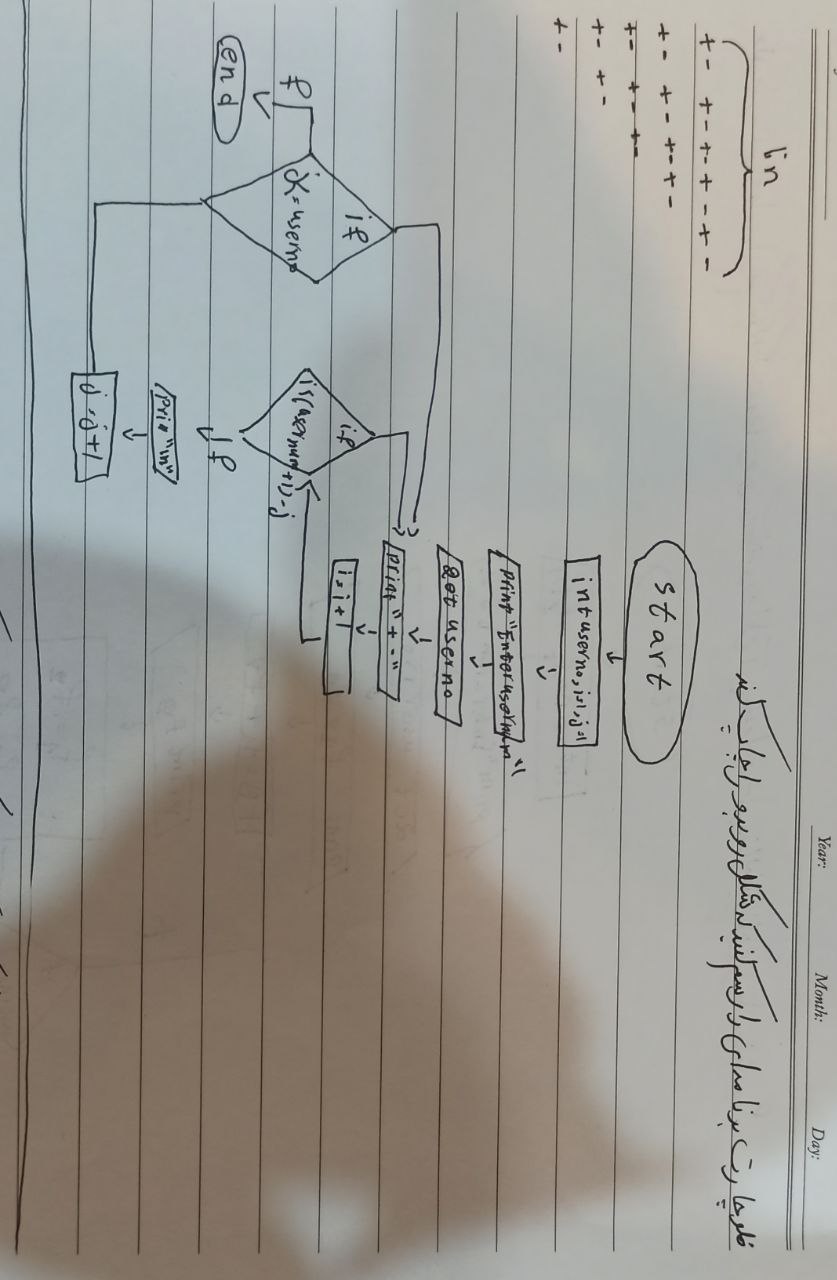 Year: Month: Day:
فلوچارت برنامه‌ای را رسم کنید که شکل روبرو را چاپ کند
lin
+- +- +- +- +-
+- +- +- +-
+- +- +-
+- +-
+-
start
int userno, i=1, j=1
print "Enter usernum"
get userno
print "+-"
i=i+1
if
i≤(usernum+1)-j
f
print "\n"
j=j+1
if
j<=userno
f
end